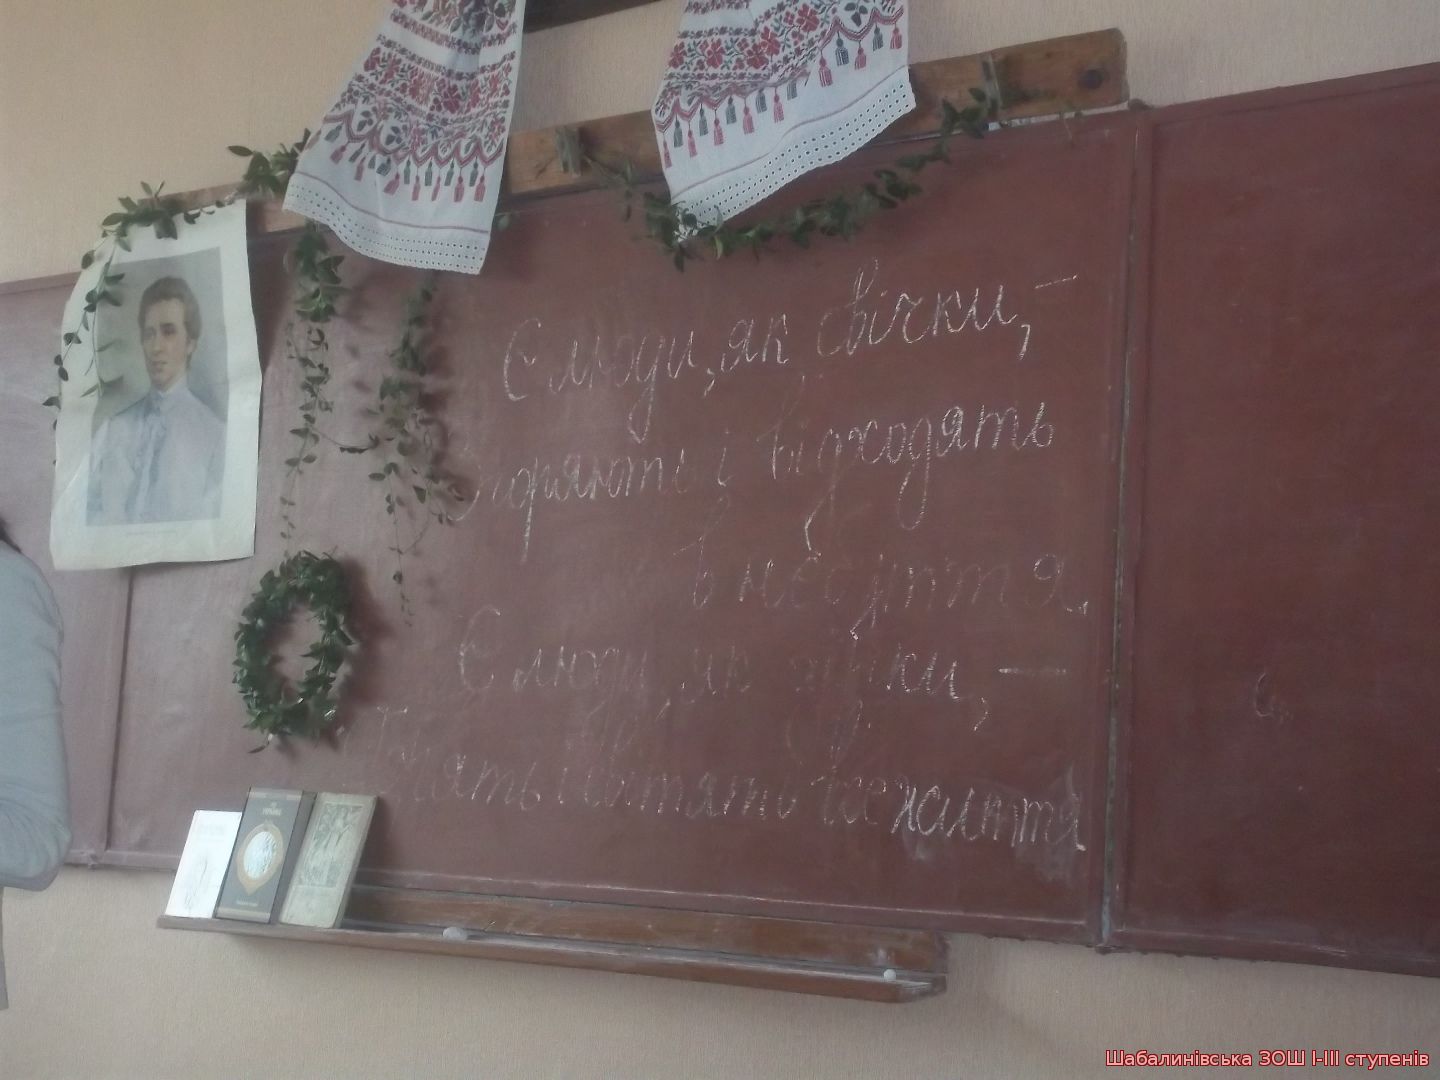 Є люди, як свічки, –
Згоряють і відходять
в небуття.
Є люди, як зірки, –
Горять і світять все життя
УКРАЇНА
Шабалинівська ЗОШ І-ІІІ ступенів